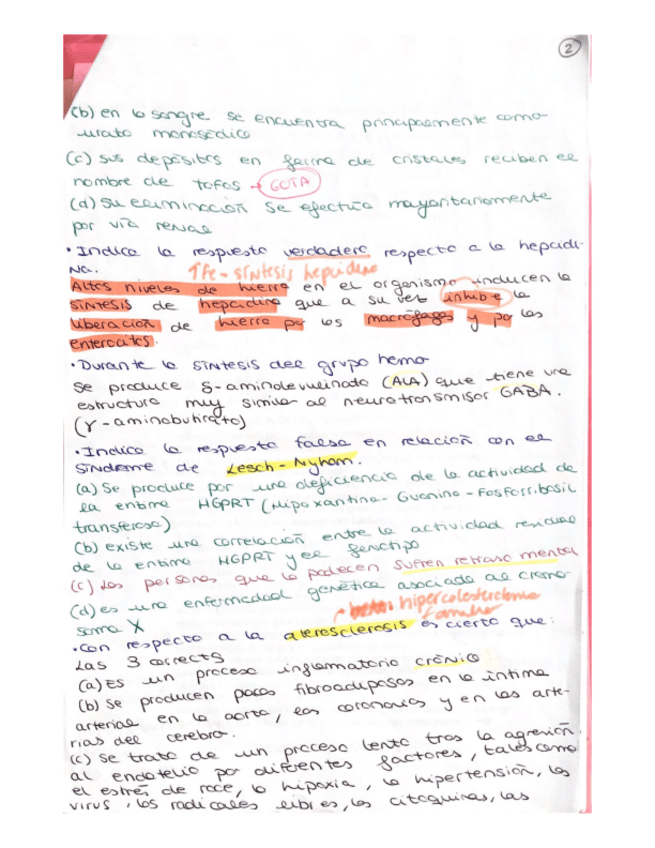 2
(b) en la sangre se encuentra principalmente como
urato monosódico
(c) sus depósitos en forma de cristales reciben el
nombre de tofos → GOTA
(d) su eliminación se efectúa mayoritariamente
por vía renal
• Indica la respuesta verdadera respecto a la hepcidi-
na. ↑Fe - síntesis hepcidina
Altos niveles de hierro en el organismo inducen la
síntesis de hepcidina que a su vez inhibe la
liberación de hierro por los macrófagos y por los
enterocitos.
• Durante la síntesis del grupo hemo
se produce δ-aminolevulinato (ALA) que tiene una
estructura muy similar al neurotransmisor GABA.
(γ-aminobutirato)
• Indica la respuesta falsa en relación con el
síndrome de Lesch-Nyhan.
(a) Se produce por una deficiencia de la actividad de
la enzima HGPRT (Hipoxantina-Guanina-Fosforribosil
transferasa)
(b) existe una correlación entre la actividad residual
de la enzima HGPRT y el fenotipo
(c) Las personas que la padecen sufren retraso mental
(d) es una enfermedad genética asociada al cromo-
soma X
hipercolesterolemia
familiar
• Con respecto a la aterosclerosis es cierto que:
Las 3 corrects
(a) Es un proceso inflamatorio crónico
(b) Se producen placas fibroadiposas en la íntima
arterial en la aorta, las coronarias y en las arte-
rias del cerebro.
(c) Se trata de un proceso lento tras la agresión
al endotelio por diferentes factores, tales como
el estrés de roce, la hipoxia, la hipertensión, los
virus, los radicales libres, las citoquinas, las